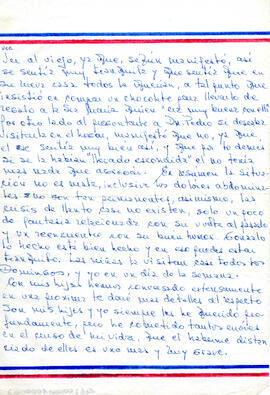 ver al viejo, ya que, según manifestó, así
se sentía muy tranquila y que sentía que en
su nueva casa todos la querían, a tal punto que
insistió en comprar un chocolate para llevarlo de
regalo a la Sra María quien "era muy buena con ella"
Por otro lado al preguntarle a Dn. Pedro si deseaba
visitarla en el hogar, manifestó que no, ya que
él se sentía muy bien así, y que por lo demás
se la habían "llevado escondida" él no tenía
nada que agregar. En resumen la situa-
ción no es mala, inclusive los dolores abdomina-
les no son tan permanentes, asimismo, las
crisis de llanto casi no existen, sólo un poco
de fantasía relacionada con su vuelta al pasado
y un reencuentro con su buen humor. Gonzalo
lo hecho está bien hecho y en eso puedes estar
tranquilo. Las niñas la visitan casi todos los
Domingos, y yo en un día de la semana.
Con mis hijos hemos conversado extensamente
en una próxima te daré más detalles al respecto
Son mis hijos y yo siempre los he querido pro-
fundamente, pero he cometido tantos errores
en el curso de mi vida, que el haberme distan-
ciado de ellos es uno más y muy grave.